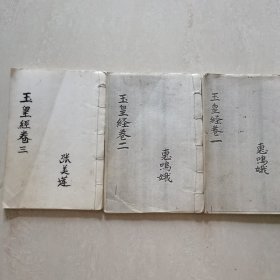 玉皇經卷三
張美蓮
玉皇経卷二
惠鳴娥
玉皇経卷一
惠鳴娥